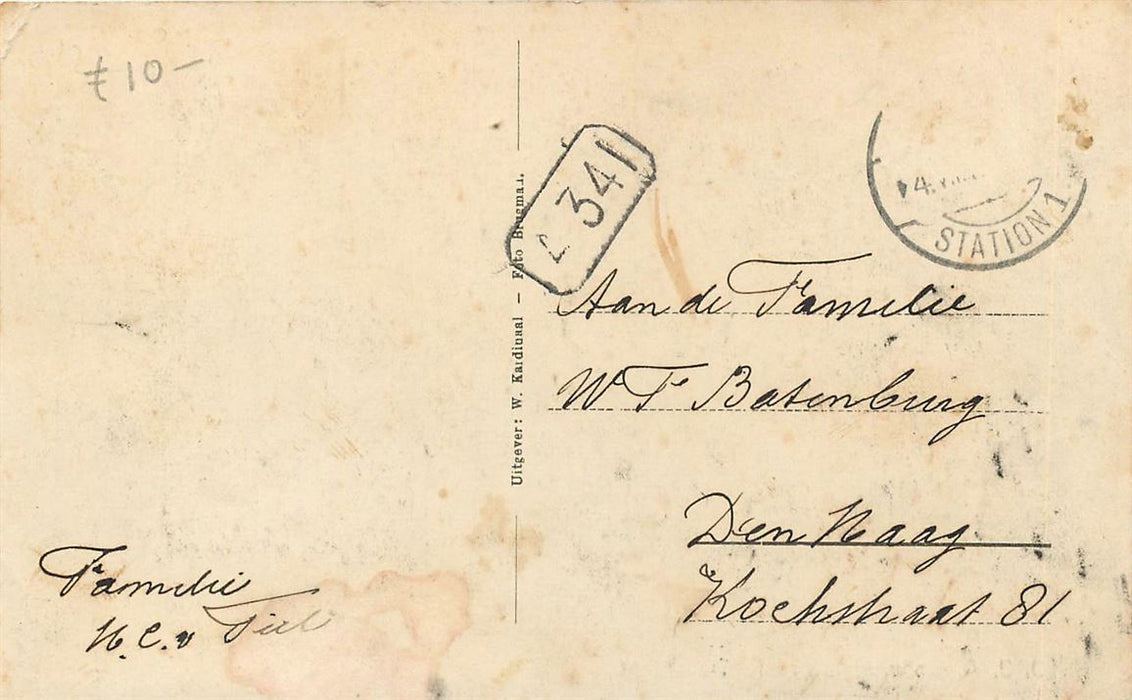 ₤10-
Uitgever: W. Kardinaal — Foto Brugman.
341
STATION 1
Aan de Familie
W F Batenburg
Den Haag
Kochstraat 81
Familie
H. C. v Tiel